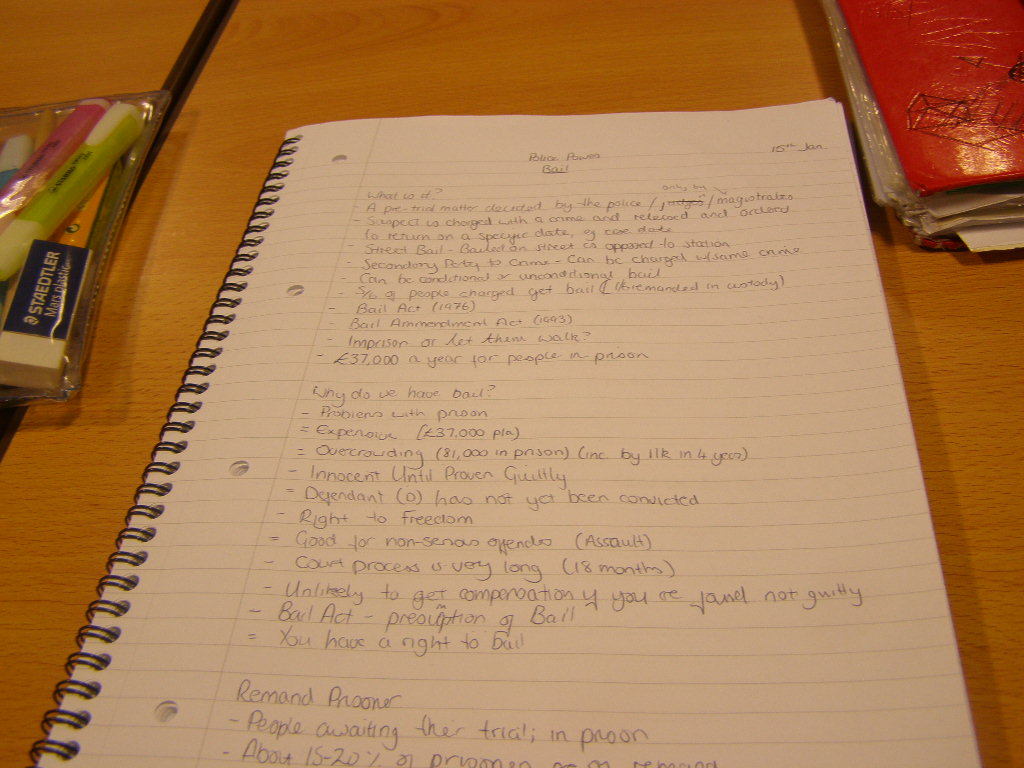 Police Power
15th Jan
Bail
What is it?
only by
- A pre-trial matter decided by the police / judges / magistrates
- Suspect is charged with a crime and released and ordered
to return on a specific date, eg case date
- Street Bail - Bailed on street as opposed to station
- Secondary Party to Crime - Can be charged w/same crime
- Can be conditional or unconditional bail
- 5/6 of people charged get bail (1/6 remanded in custody)
- Bail Act (1976)
- Bail Ammendment Act (1993)
- Imprison or let them walk?
- £37,000 a year for people in prison
Why do we have bail?
- Problems with prison
= Expensive (£37,000 pla)
= Overcrowding (81,000 in prison) (inc. by 11k in 4 years)
- Innocent Until Proven Guiltly
= Defendant (D) has not yet been convicted
- Right to freedom
= Good for non-serious offenders (Assault)
- Court process is very long (18 months)
- Unlikely to get compensation if you're found not guilty
- Bail Act - presumption of Bail
= You have a right to bail
Remand Prisoner
- People awaiting their trial; in prison
- About 15-20% of prisoners are on remand
STAEDTLER
Mars plastic